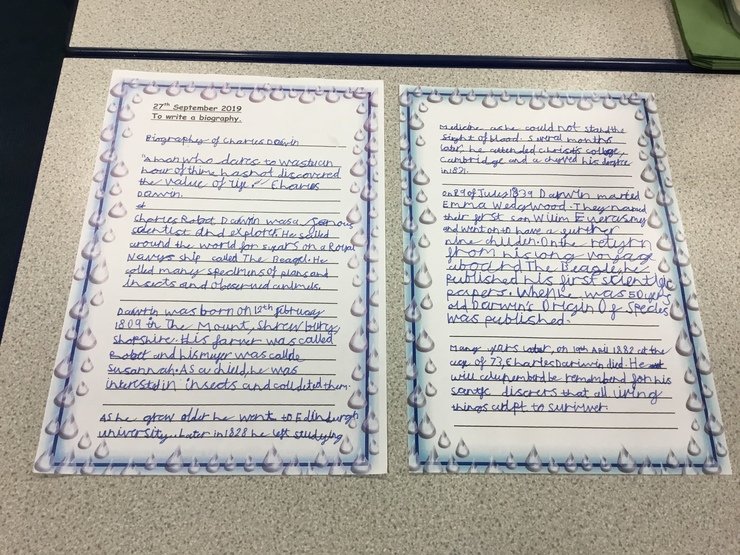 27th September 2019
To write a biography.
Biography of Charles Darwin
"A man who dares to wast uan
hour of thime has not discovered
the value of life" Charles
Darwin.
Charles Robat Darwin was a famous
scientist and explorer. He sailed
around the world for 5 years on a Royal
Navys ship called The Beagel. He
colled many specimens of plans and
insects and observed animels.
Daiwin was born on 12th february
1809 in The Mount, Shrewbury,
Shopshire. His farwr was called
Robet and his muyr was callde
Susannah. As a child, he was
interestd in insects and colldeted them.
As he grow older he want to Edinburgh
university. Later in 1828 he left studying
Medicine as he could not stand the
sight of blood. Several months
later, he attended christs college,
Cambridge and a cheved his degree
in 1831.
on 29 of July 1839 Darwin marred
Emma Wedgwood. They named
their first son Wllim
and went on to have a further
nine childen. On the retyrn
from his long voyage
aboard The Beagle, he
published his first scientific
papers. When he was 50 years
old Darwin's Origin Of Species
was published.
Many years later, on 19th Apil 1882 at the
age of 73, Charles Darwin died. He
will be rememband for his
that all living
things adpt to surviver.